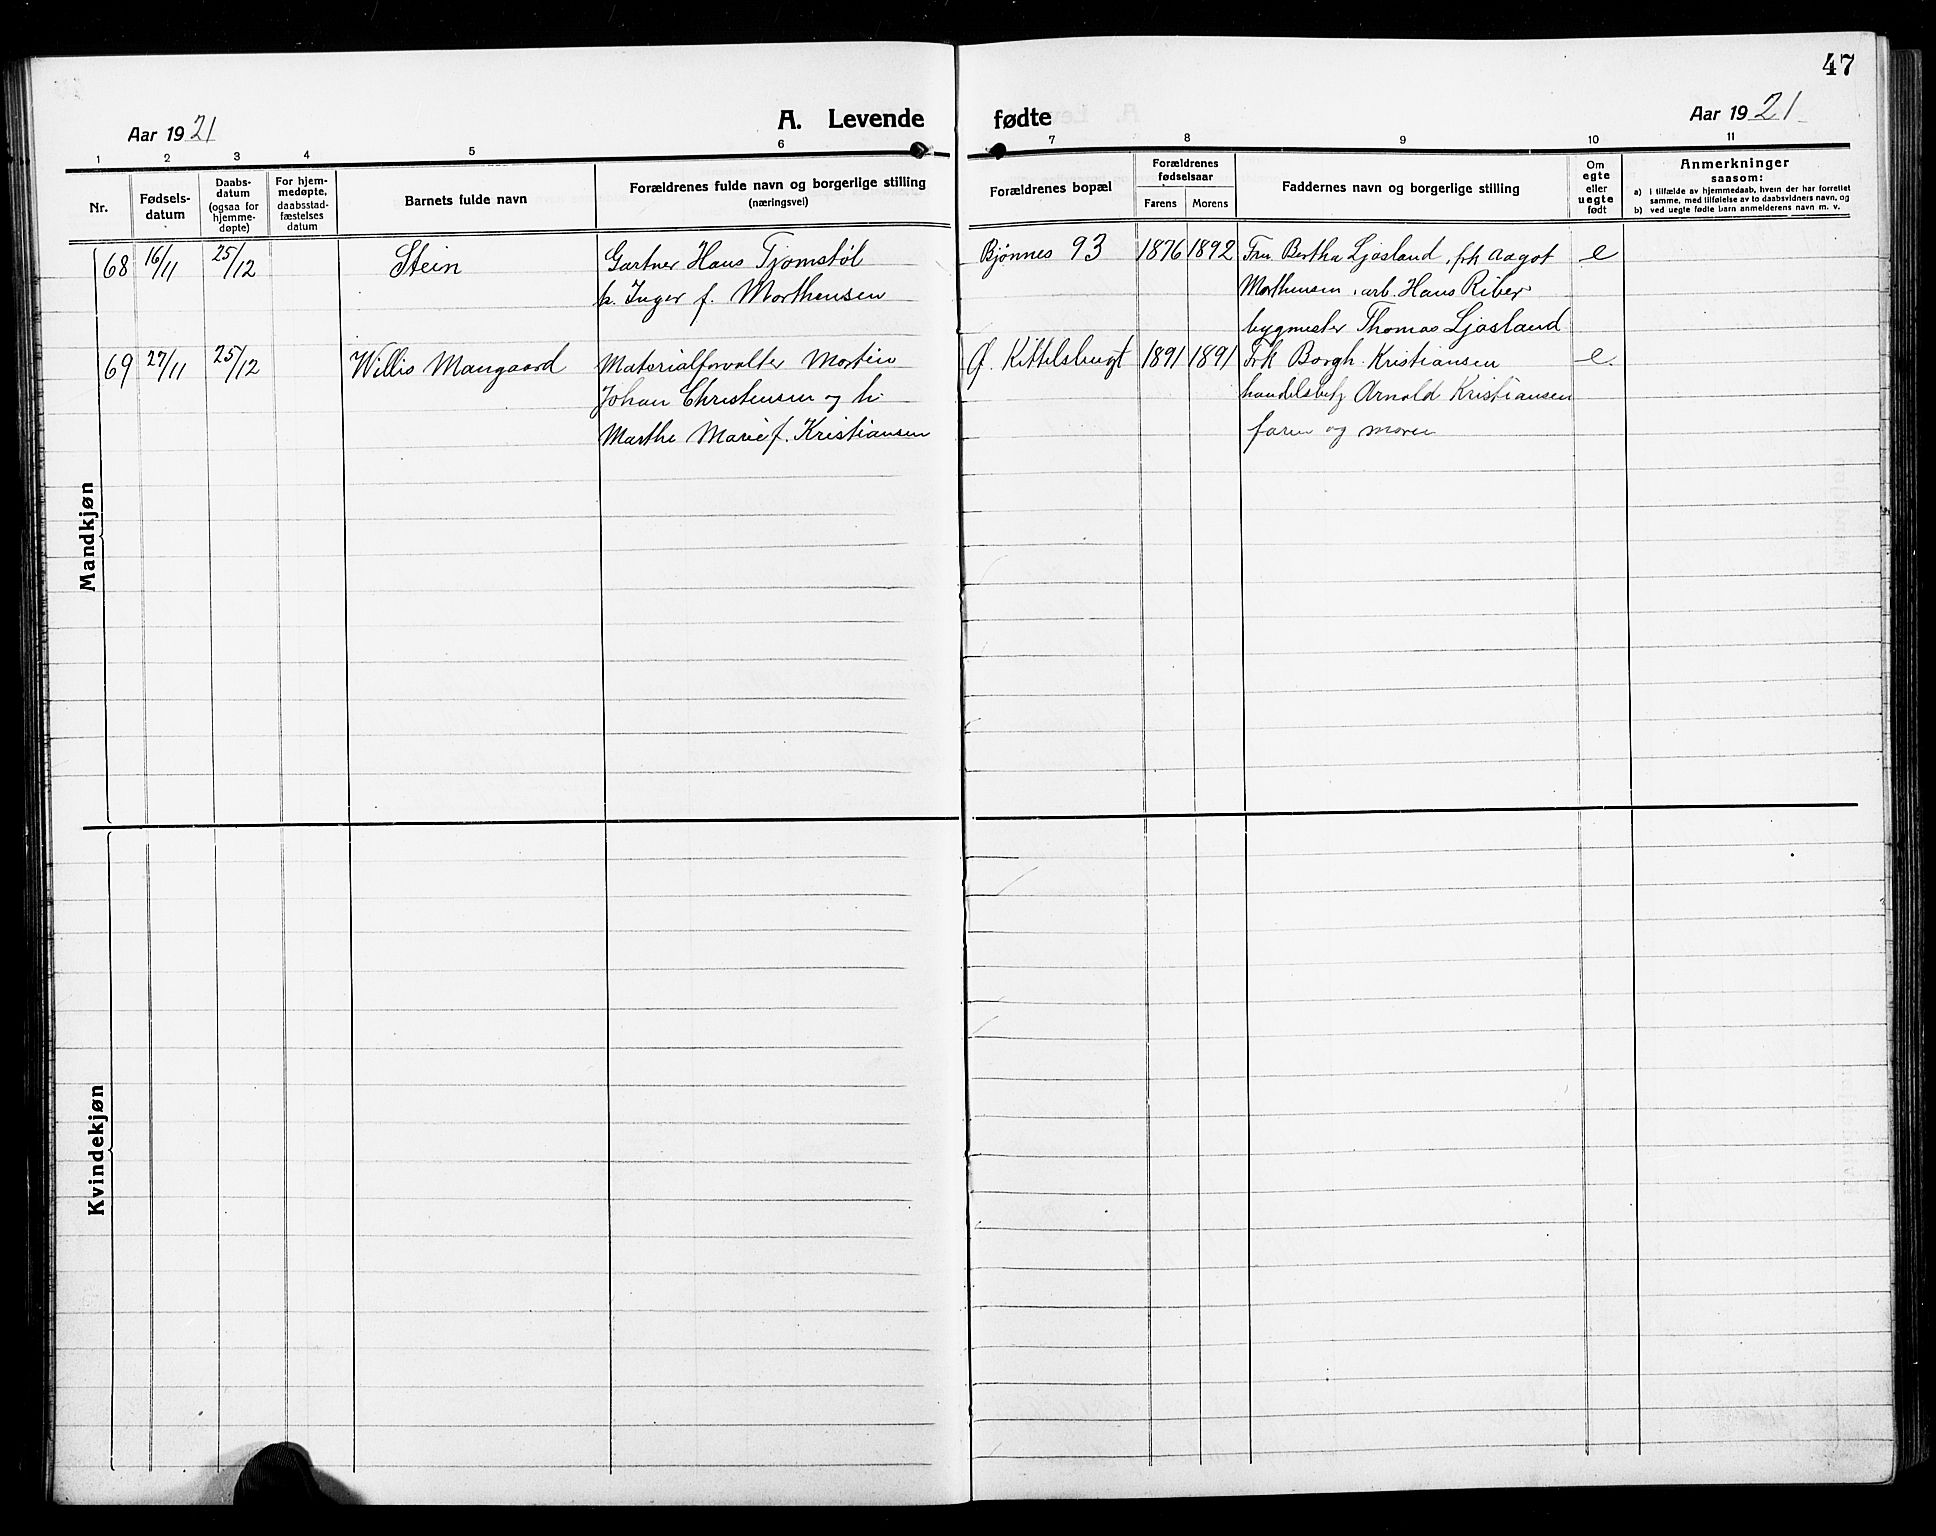 47
Aar 1921
A. Levende fødte
Aar 1921
1 2 3 4 5 6 7 8 9 10 11
Nr.
Fødsels-
datum
Daabs-
datum
(ogsaa for
hjemme-
døpte)
For hjem-
medøpte,
daabsstad-
fæstelses
datum
Barnets fulde navn
Forældrenes fulde navn og borgerlige stilling
(næringsvei)
Forældrenes bopæl
Forældrenes
fødselsaar
Farens Morens
Faddernes navn og borgerlige stilling
Om
egte
eller
uegte
født
Anmerkninger
saasom:
a) i tilfælde av hjemmedaab, hvem der har forrettet
samme, med tilføielse av to daabsvidners navn, og
b) ved uegte fødte barn anmelderens navn m. v.
Mandkjøn
68 16/11 25/12 Stein
Gartner Hans Tjomstøl
h. Inger f. Morthensen
Bjønnes 93 1876 1892
Fru Bertha Ljosland, frk Aagot
Morthensen, arb. Hans Riber
bygmester Thomas Ljosland
e
69 27/11 25/12 Willis Mangaard
Materialforvalter Martin
Johan Christensen og h.
Marthe Marie f. Kristiansen
Ø. Kittelsbugt 1891 1891
Frk Borgh. Kristiansen
handelsbetj Arnold Kristiansen
faren og moren
e.
Kvindekjøn